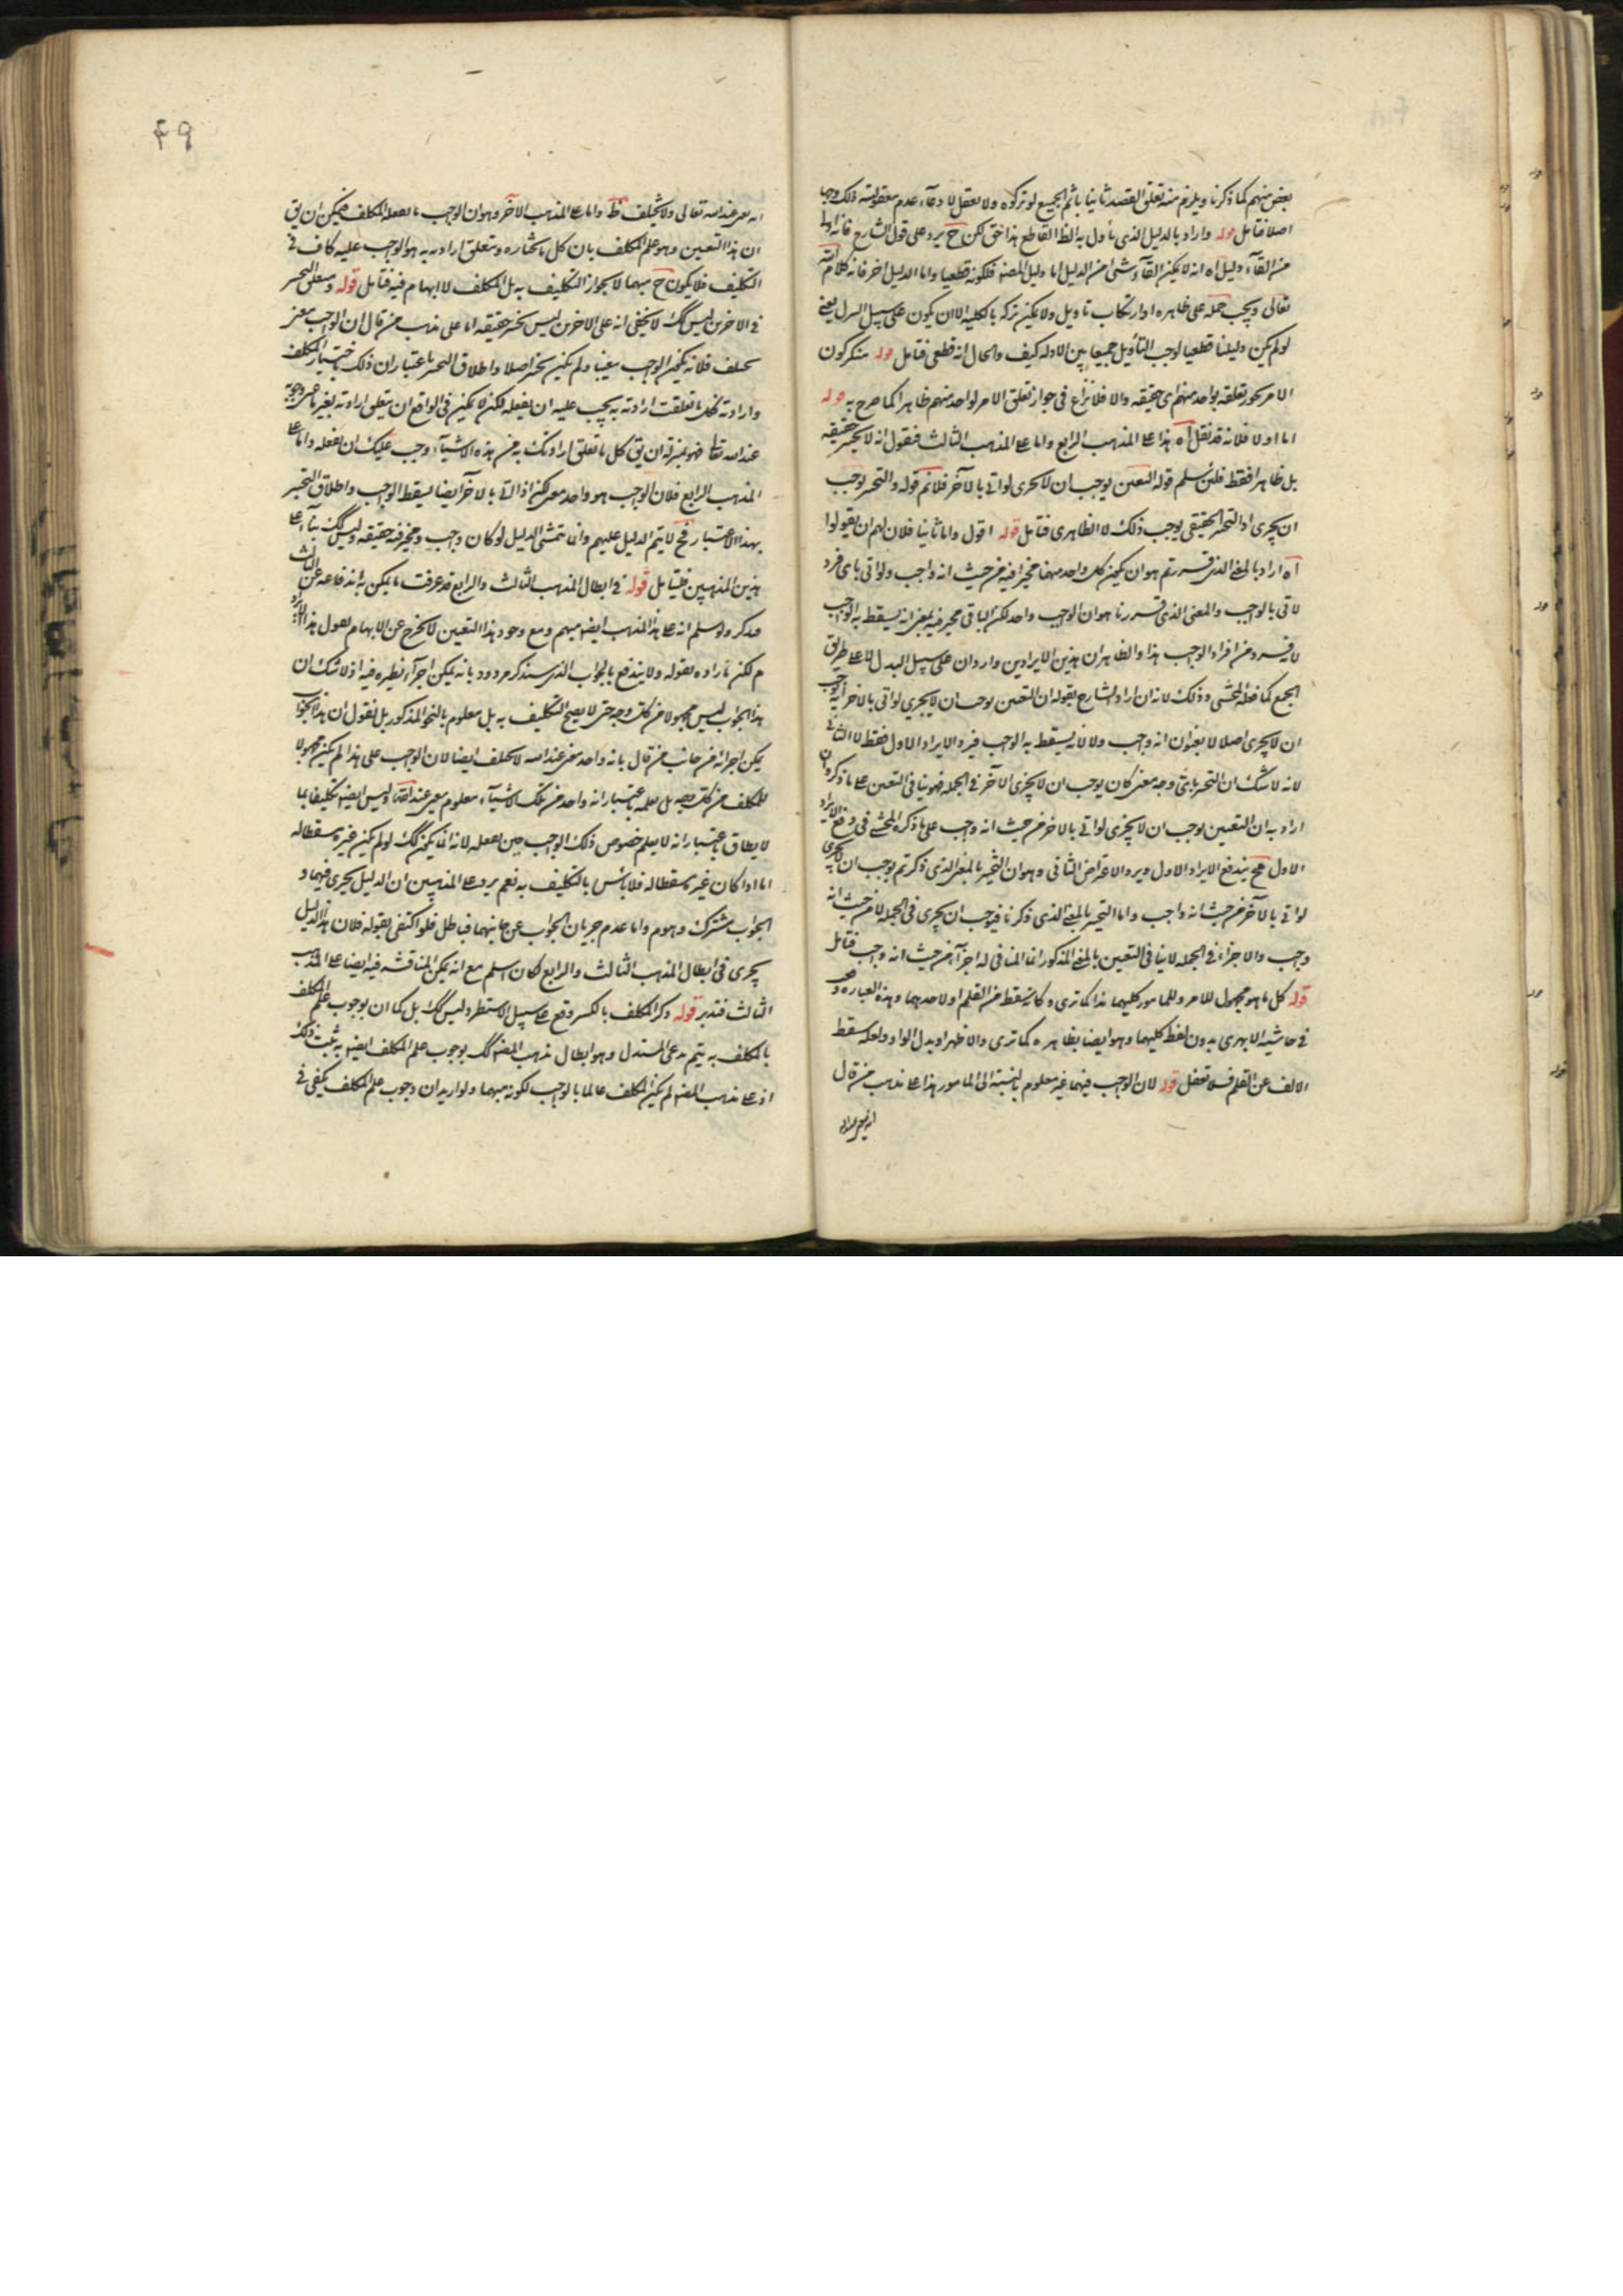 بعض منهم كما ذكرنا ويلزم منه تعلق القصد ثانيا باثم الجميع لو تركوه ولا يعقل لا دعاء عدم معقولية ذلك
اصلا فتامل قوله واراد بالدليل الذي ناول به الظ القاطع هذا حق لكن ح يرد على قول الشارح فانه
من القآء دليل اه انه لا يمكن القآء شئ من الدليل اما دليل المصنف فلكونه قطعيا واما الدليل اخر فانه كلام الله
تعالى ويجب حمله على ظاهره او ارتكاب تاويل ولا يمكن تركه بالكليه الا ان يكون على سبيل التنزل يعني
لو لم يكن دليلنا قطعيا لوجب التأويل جمعا بين الادله كيف والحال انه قطعي فتامل قوله منكركون
الامر بحور تعلقه بواحد منهم اى حقيقه والا فلا نزاع في جواز تعلق الامر لواحد منهم ظاهرا كما صرح به قوله
اما اولا فلانه قد نقل اه هذا على المذهب الرابع واما على المذهب الثالث فنقول انه لا تخيير حقيقه
بل ظاهرا فقط فلئن سلم قوله التعين يوجب ان لا يجزى لو اتى بالآخر فلانم قوله والتخير يوجب
ان يجزى اذ التخير الحقيقي يوجب ذلك لا الظاهرى فتامل قوله اقول واما ثانيا فلان لهم ان يقولوا
آه اراد بالمعنى الذى قررتم هو ان يكون كل واحد منهما مخيرا فيه من حيث انه واجب ولو اتى باى فرد
لاتى بالواجب والمعنى الذي قررنا هو ان الواجب واحد لكن الباقى مخير فيه بمعنى انه يسقط به الواجب
لا فرد من افراد الواجب هذا والظاهر ان هذين الايرادين واردان على سبيل البدل لا على طريق
الجمع كما فعله المحشى وذلك لانه ان اراد الشارح بقوله ان التعين يوجب ان لا يجزى لو اتى بالاخر انه يوجب
ان لا يجزى اصلا لا بعنوان انه واجب ولا لانه يسقط به الواجب فيرد الايراد الاول فقط لا الثاني
لانه لا شك ان التخير باى وجه معنى كان يوجب ان لا يجزى الآخر في الجمله فهو ينافى التعين على ما ذكروان
اراد به ان التعيين يوجب ان لا يجزى لو اتى بالاخر من حيث انه واجب على ما ذكره المحشي في دفع الايراد
الاول فح يندفع الايراد الاول ويرد الاعتراض الثانى وهو ان التخير بالمعنى الذى ذكرتم يوجب ان لا يجزى
لو اتى بالآخر من حيث انه واجب واما التخير بالمعنى الذى ذكرنا فيوجب ان يجزى في الجمله لا من حيث انه
واجب والاجزاء في الجمله لا ينافى التعين بالمعنى المذكور انما المنافى له اجزآء من حيث انه واجب فتامل
قوله كل ما هو مجهول للامر وللمامور كليهما هذا كما ترى وكانه سقط من القلم او لاحدهما وهذه العباره
في حاشيه الابهرى بدون لفظ كليهما وهو ايضا بظاهره كما ترى والاظهر او بدل الواو ولعله سقط
الالف عن القلم فلا تغفل قوله لان الواجب فيهما غير معلوم بالنسبة الى المامور هذا على مذهب من قال
انه معين عند الله
٤٩
انه معين عند الله تعالى ولا يختلف ظ واما على المذهب الآخر وهو ان الواجب ما يفعله المكلف فيمكن ان يق
ان هذا التعيين وهو علم المكلف بان كل ما يختاره ويتعلق ارادته به هو الواجب عليه كاف في
التكليف فلا يكون ح مبهما لا يجوز التكليف به بل المكلف لا ابهام فيه فتامل قوله ومعلق التخير
في الاخرين ليس كك لا يخفى انه على الاخرين ليس تخير حقيقه اما على مذهب من قال ان الواجب معين
يختلف فلانه يكون الواجب معينا ولم يكن تخير اصلا واطلاق التخير باعتبار ان ذلك باختيار المكلف
وارادته فكل ما تعلقت ارادته به يجب عليه ان يفعله لكن لا يمكن في الواقع ان يتعلق ارادته بغير ما هو
عند الله تعا فهو بمنزلة ان يق كل ما تعلق ارادتك به من هذه الاشيآء وجب عليك ان تفعله واما على
المذهب الرابع فلان الواجب هو واحد معين لكن اذا اتى بالآخر ايضا يسقط الواجب واطلاق التخير
بهذا الاعتبار فح لا يتم الدليل عليهم وانما يتمشى الدليل لو كان واجب ومخير فيه حقيقه وليس كك بنآء على
هذين المذهبين فليتامل قوله في ابطال المذهب الثالث والرابع قد عرفت ما يمكن به اندفاعه عن الثالث
فتذكر ولو سلم انه على هذا المذهب ايضا مبهم ومع وجود هذا التعين لا يخرج عن الابهام نقول هذا
م لكن ما اراده بقوله ولا يندفع بالجواب الذى سنذكر مردود بانه يمكن اجرآء نظيره فيه اذ لا شك ان
هذا الجواب ليس مجهولا من كل وجه حتى لا يصح التكليف به بل معلوم بالنحو المذكور بل نقول ان هذا الجواب
يمكن اجرائه من جانب من قال بانه واحد معين عند الله لا يختلف ايضا لان الواجب على هذا لم يكن مجهولا
للمكلف من كل وجه بل يعلمه باعتبار انه واحد من تلك الاشيآء معلوم معين عند الله تعالى وليس ايضا تكليفا بما
لا يطاق باعتبار انه لا يعلم خصوص ذلك الواجب حين يفعله لانه انما يكون كك لو لم يكن غيره مسقطا له
اما اذا كان غيره مسقطا له فلا باس بالتكليف به نعم يرد على المذهبين ان الدليل يجرى فيهما و
الجواب مشترك وهوم واما عدم جريان الجواب عن جانبهما فباطل فلو اكتفى بقوله فلان هذا الدليل
يجرى في ابطال المذهب الثالث والرابع لكان اسلم مع انه يمكن المناقشه فيه ايضا على المذهب
الثالث فتدبر قوله ذكر المكلف بالكسر وقع على سبيل الاستطراد وليس كك بل كما ان بوجوب علم المكلف
بالمكلف به يتم مدعى المستدل وهو ابطال مذهب المصنف كك بوجوب علم المكلف ايضا به يثبت ذلك
اذ على مذهب المصنف لم يكن المكلف عالما بالواجب لكونه مبهما ولو اريد ان وجوب علم المكلف يكفى في